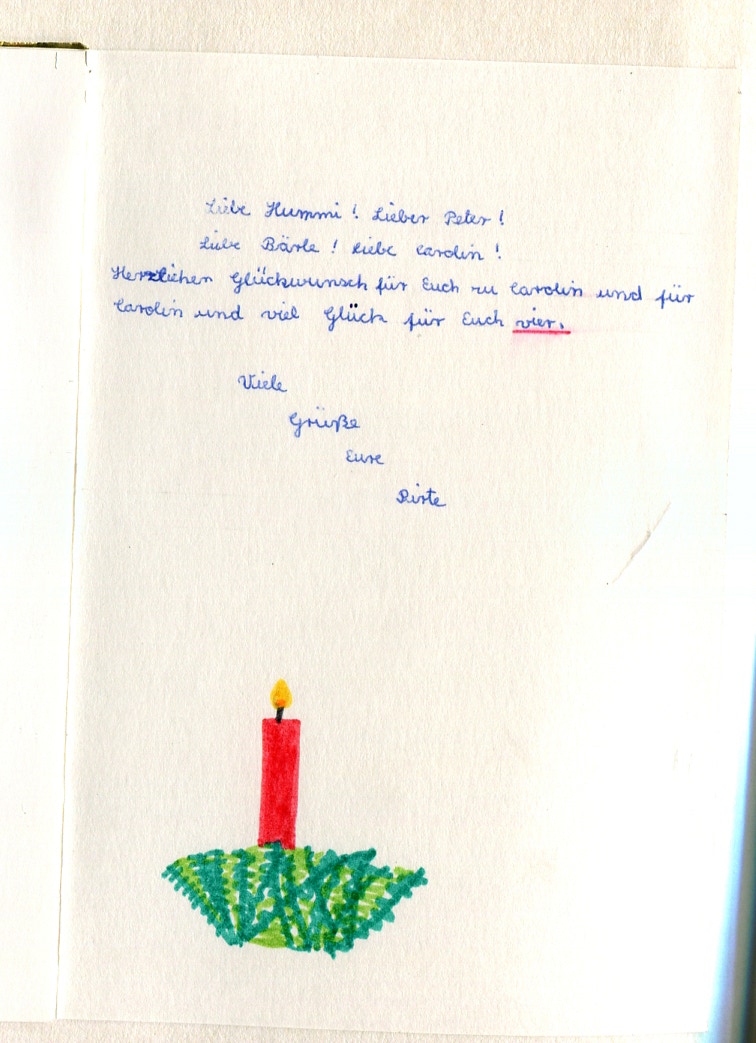 Liebe Hummi! Lieber Peter!
Liebe Bärle! Liebe Carolin!
Herzlichen Glückwunsch für Euch zu Carolin und für
Carolin und viel Glück für Euch vier.
Viele
Grüße
Eure